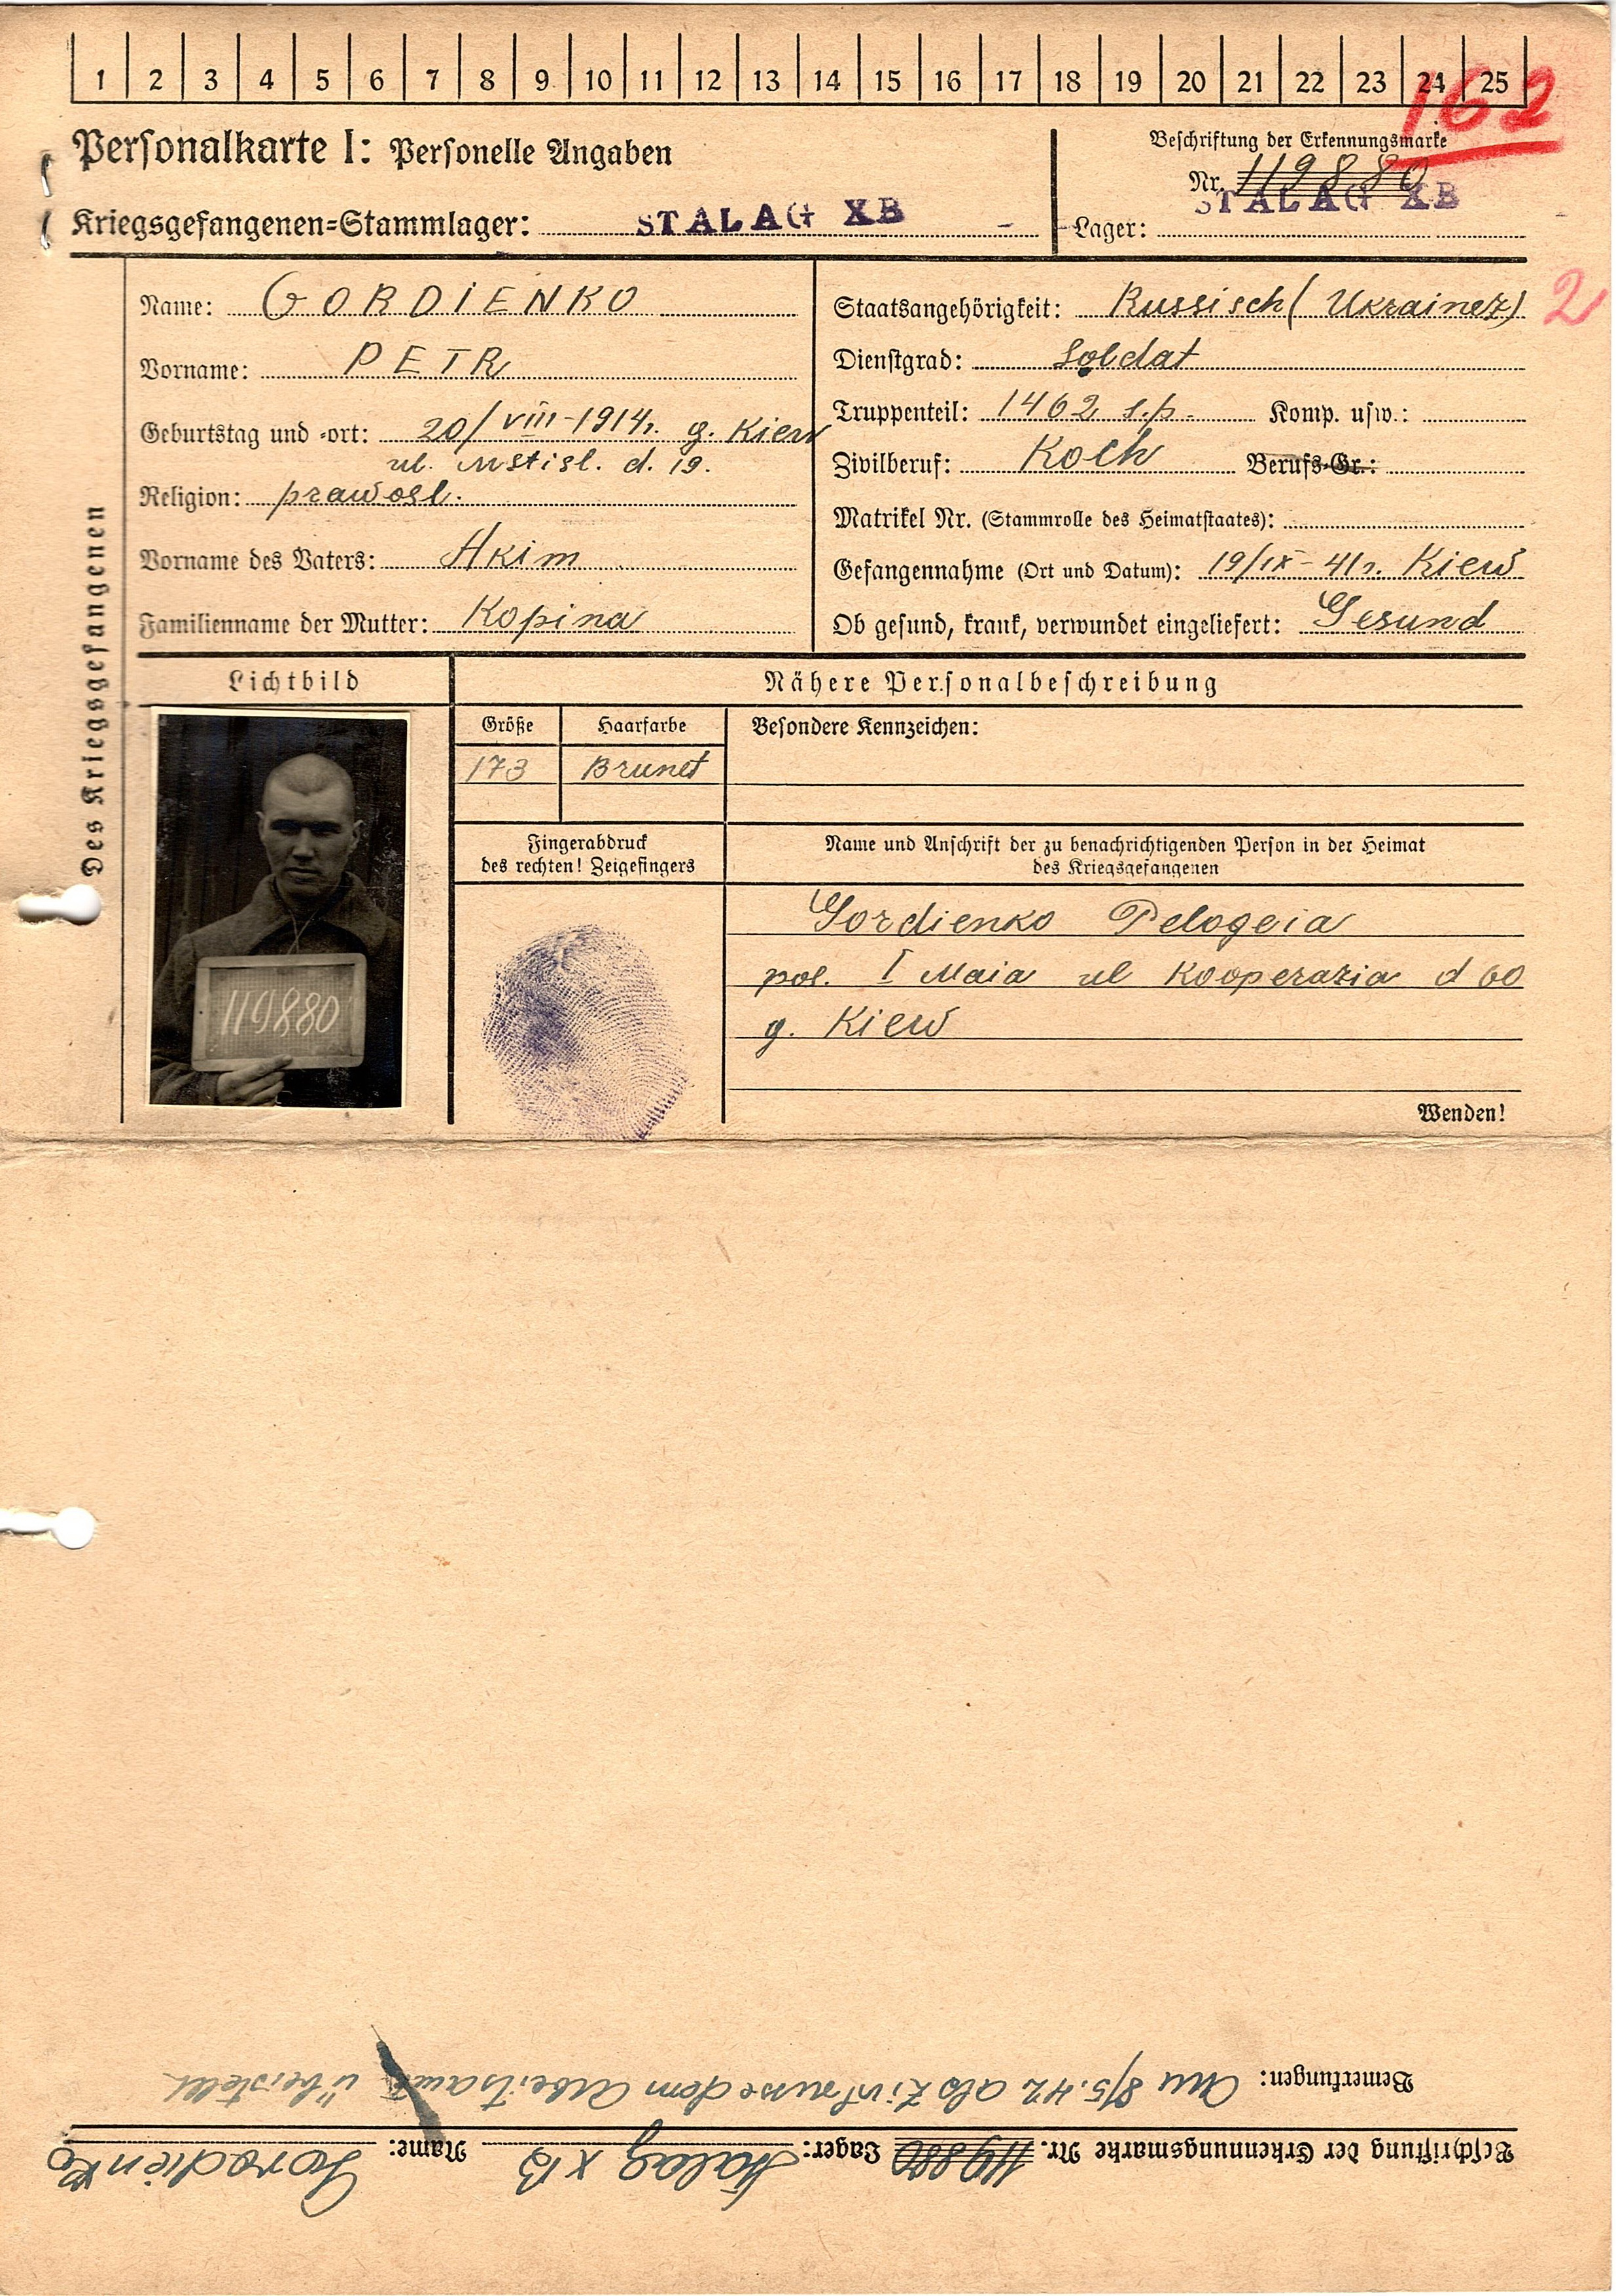 1 2 3 4 5 6 7 8 9 10 11 12 13 14 15 16 17 18 19 20 21 22 23 24 25
162
Personalkarte I: Personelle Angaben
Beschriftung der Erkennungsmarke
Nr. 119880
Kriegsgefangenen=Stammlager: STALAG XB
Lager: STALAG XB
Des Kriegsgefangenen
Name: GORDIENKO
Vorname: PETR
Geburtstag und =ort: 20/VIII-1914r. g. Kiew
ul. Mstisl. d. 19.
Religion: prawosl.
Vorname des Vaters: Akim
Familienname der Mutter: Kopina
Staatsangehörigkeit: Russisch (Ukrainez) 2
Dienstgrad: Soldat
Truppenteil: 1462 s.p. Komp. usw.:
Zivilberuf: Koch Berufs=Gr.:
Matrikel Nr. (Stammrolle des Heimatstaates):
Gefangennahme (Ort und Datum): 19/IX-41r. Kiew
Ob gesund, krank, verwundet eingeliefert: Gesund
Lichtbild
119880
Nähere Personalbeschreibung
Größe Haarfarbe Besondere Kennzeichen:
173 Brunet
Fingerabdruck
des rechten! Zeigefingers
Name und Anschrift der zu benachrichtigenden Person in der Heimat
des Kriegsgefangenen
Gordienko Pelogeia
pos. I Maia ul Kooperazia d 60
g. Kiew
Wenden!
Bemerkungen: Am 8/5.42 als Zivilrusse dem Arbeitsamt überstellt
Beschriftung der Erkennungsmarke Nr. 119880 Lager: Stalag XB Name: Gorodienko